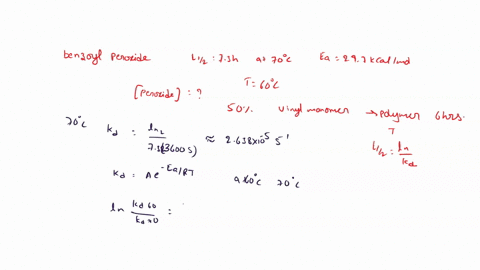 benzoyl peroxide t1/2 : 7.3h at 70°C Ea = 29.7 kcal/mol
[peroxide] : ? T=60°C
50% vinyl monomer → polymer 6hrs.
T
70°C kd : ln2 / 7.3(3600s) ≈ 2.638×10⁻⁵ s⁻¹
t1/2 = ln / kd
kd = Ae^-Ea/RT at 60°C 70°C
ln kd 60 / kd 70 =